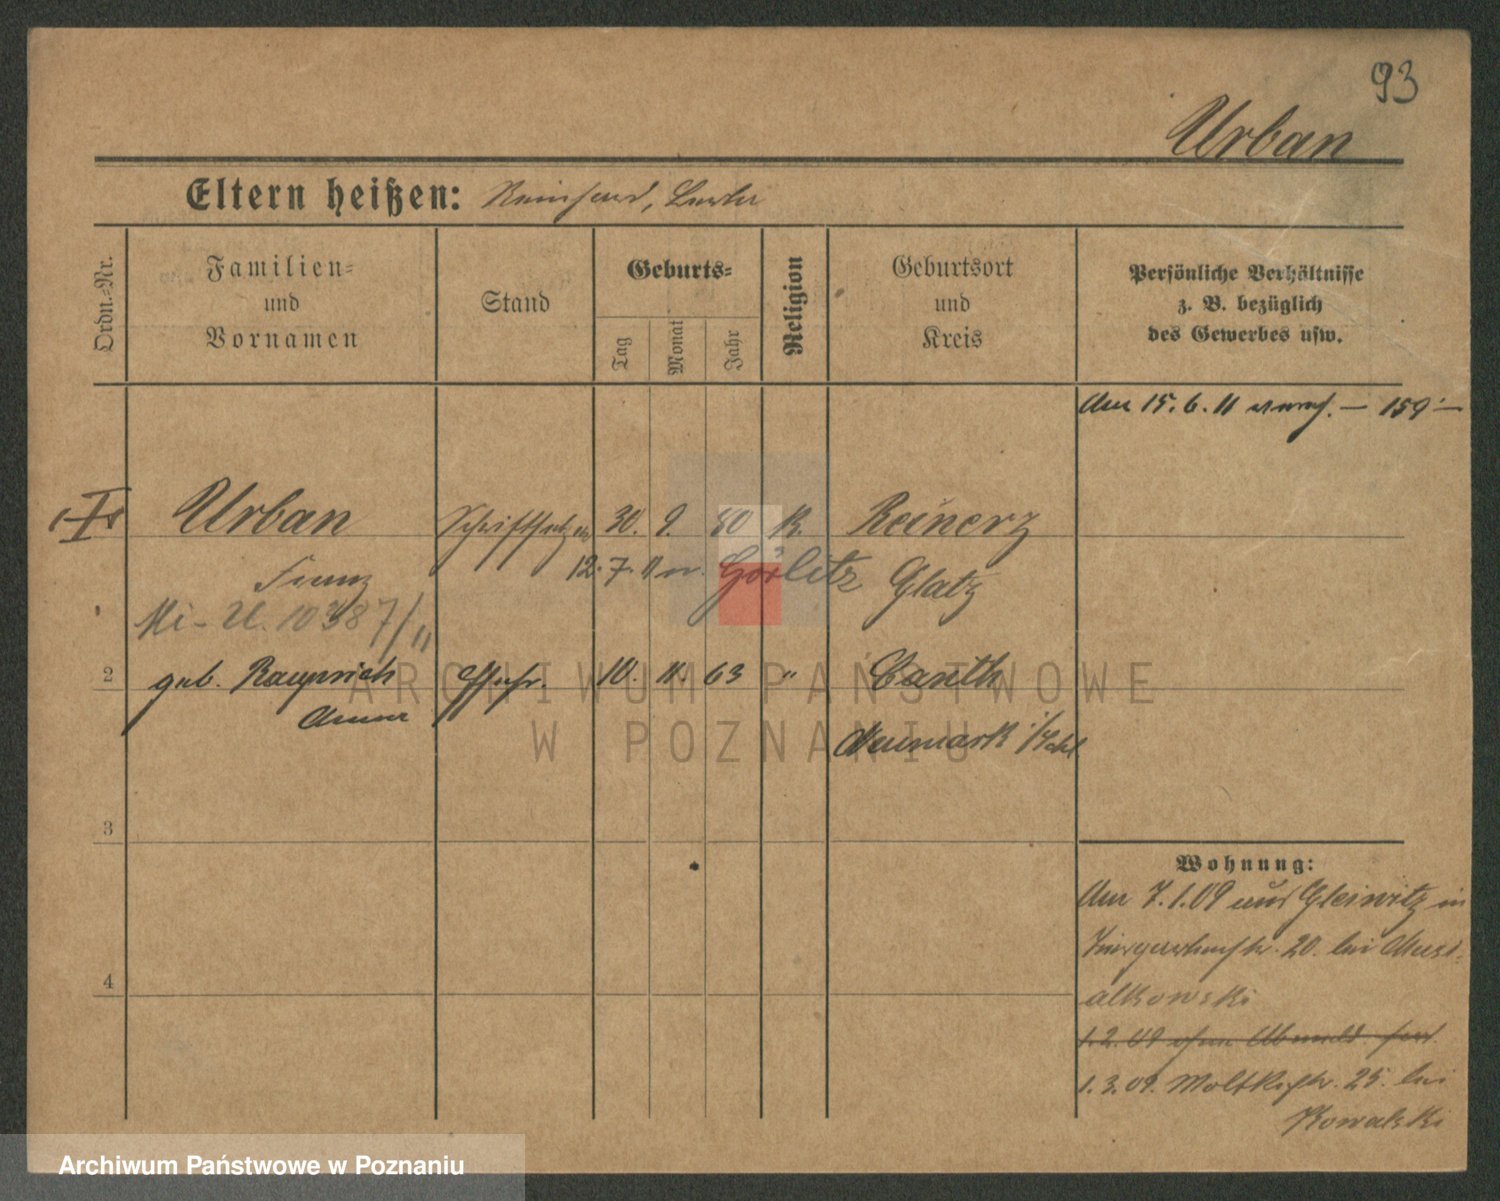 93
Urban
Eltern heißen: Reinhard,
Ordn.-Nr.
Familien-
und
Vornamen
Stand
Geburts-
Tag
Monat
Jahr
Religion
Geburtsort
und
Kreis
Persönliche Verhältnisse
z. B. bezüglich
des Gewerbes usw.
Am 15. 6. 11 — 159 —
Urban Schriftsetzer 30. 9. 80 K. Reinerz
12. 7. 11 n. Görlitz Glatz
Franz
Mi-U. 10387/11
2 geb. Rauprich Ehefr. 10. 11. 63 " Canth
Anna
Neumark i/Schl
3
Wohnung:
Am 7. 1. 09 aus Gleiwitz in
20. bei Musi-
alkowski
4
1. 2. 09 ohne Abmeld. fort
1. 3. 09. Moltkestr. 25. bei
Kowalski
ARCHIWUM PAŃSTWOWE
W POZNANIU
Archiwum Państwowe w Poznaniu